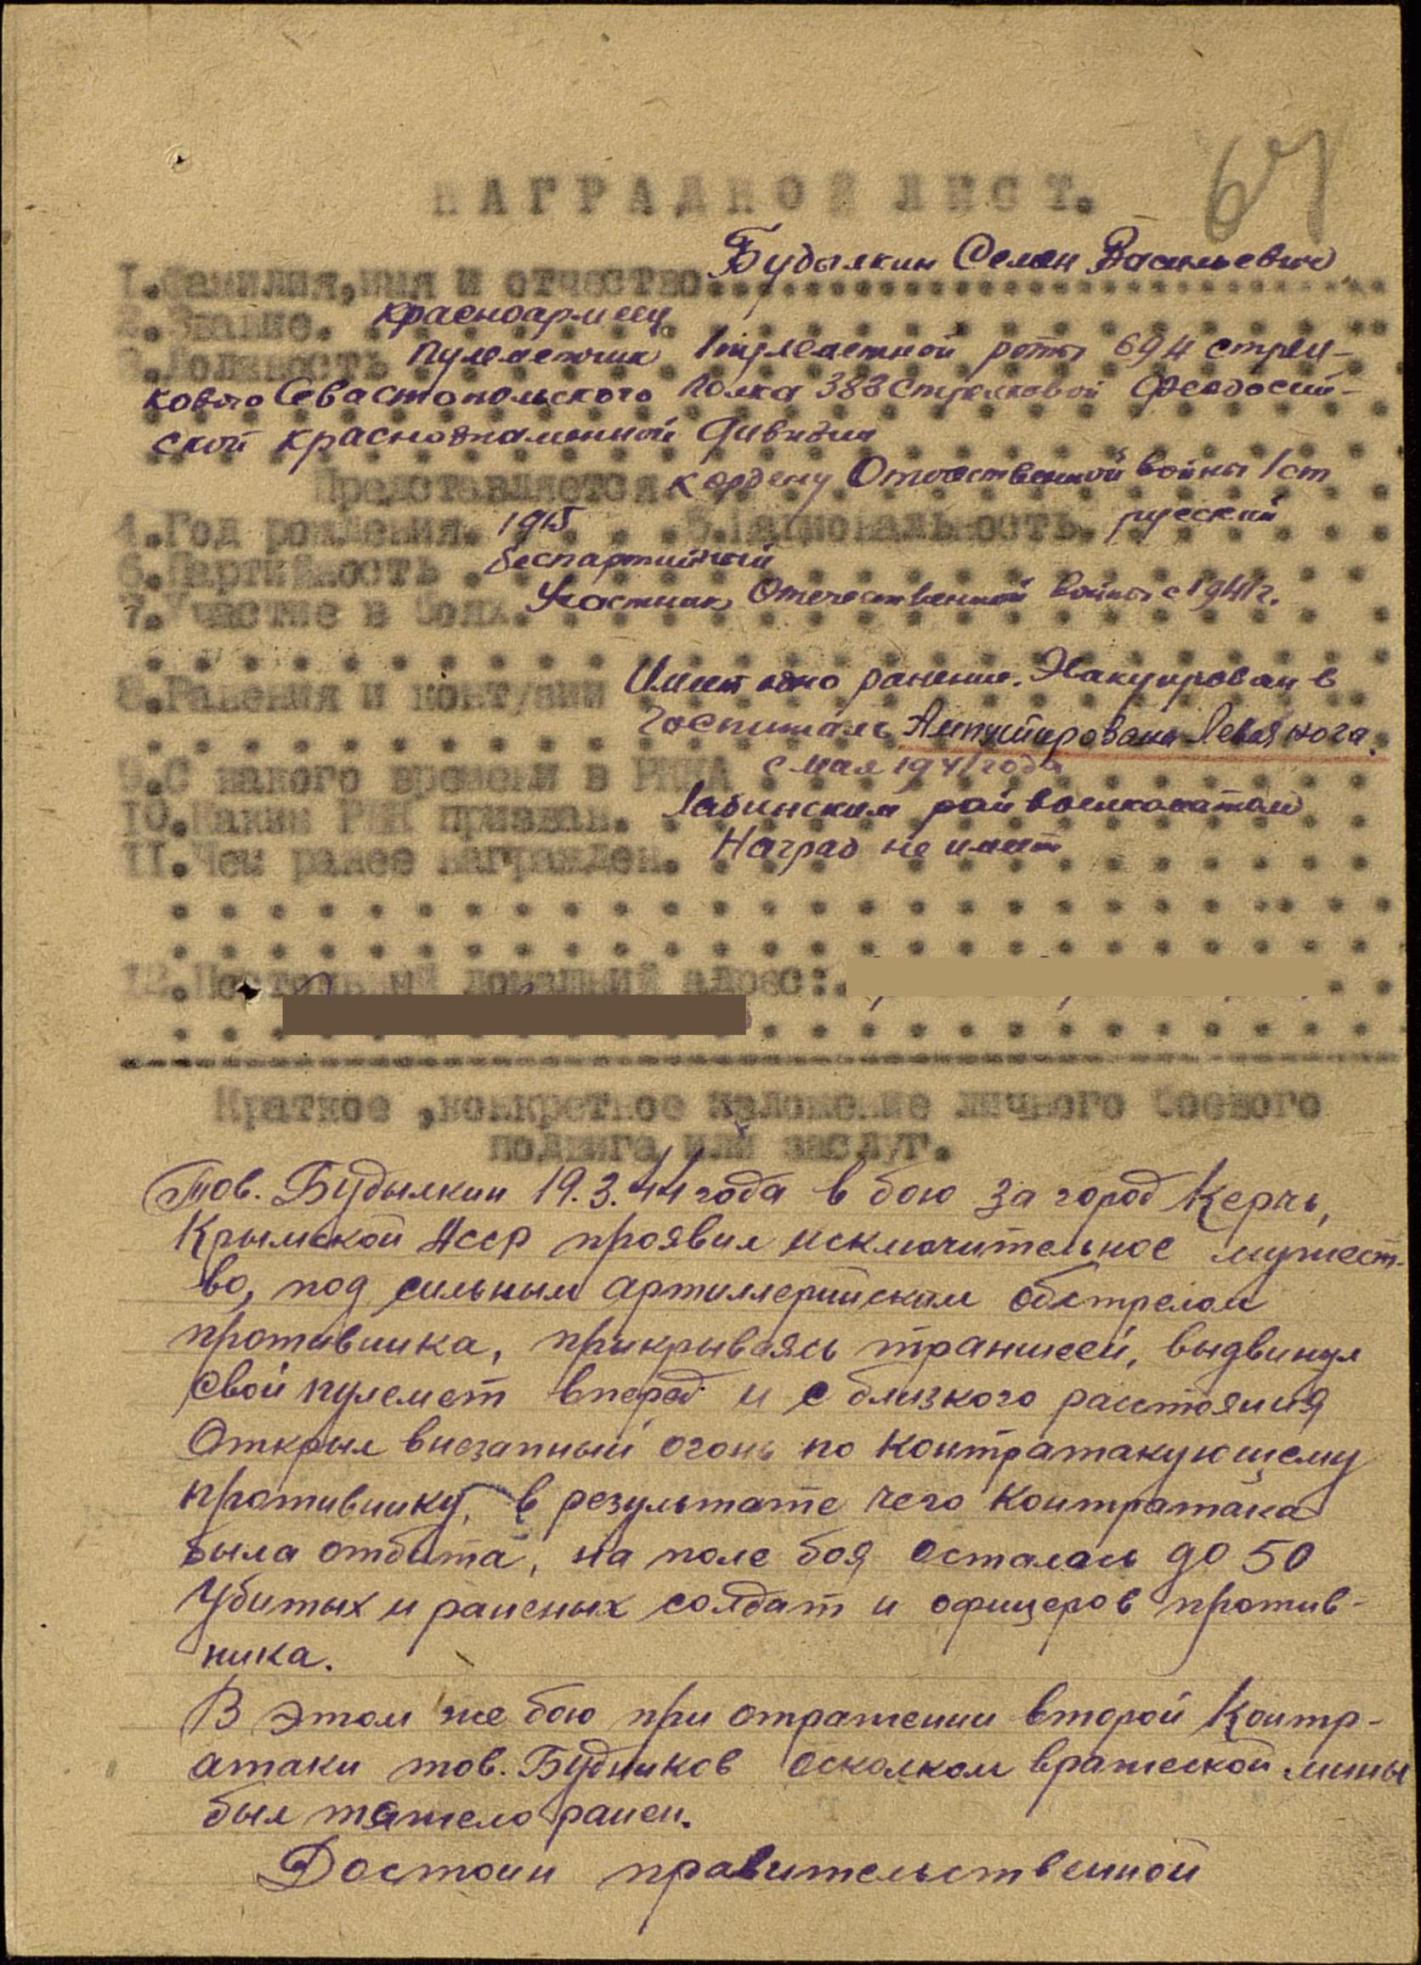 67
НАГРАДНОЙ ЛИСТ.
1.Фамилия,имя и отчество. Будылкин Семен Васильевич
2.Звание. Красноармеец
3.Должность Пулеметчик 1 пулеметной роты 694 стрел-
кового Севастопольского полка 383 Стрелковой Феодосий-
ской краснознаменной дивизии
Представляется к ордену Отечественной войны 1 ст
4.Год рождения. 1915 5.Национальность. русский
6.Партийность беспартийный
7.Участие в боях. Участник Отечественной войны с 1941 г.
8.Ранения и контузии Имеет одно ранение. Эвакуирован в
госпиталь Ампутирована левая нога.
9.С какого времени в РККА с мая 1941 года
10.Каким РВК призван. Лабинским райвоенкоматом
11.Чем ранее награжден. Наград не имеет
12.Постоянный домашний адрес:
Краткое ,конкретное изложение личного боевого
подвига или заслуг.
Тов. Будылкин 19.3.44 года в бою за город Керчь,
Крымской АССР проявил исключительное мужест-
во, под сильным артиллерийским обстрелом
противника, прикрываясь траншеей, выдвинул
свой пулемет вперед и с близкого расстояния
открыл внезапный огонь по контратакующему
противнику, в результате чего контратака
была отбита, на поле боя осталось до 50
убитых и раненых солдат и офицеров против-
ника.
В этом же бою при отражении второй контр-
атаки тов. Будников осколком вражеской мины
был тяжело ранен.
Достоин правительственной